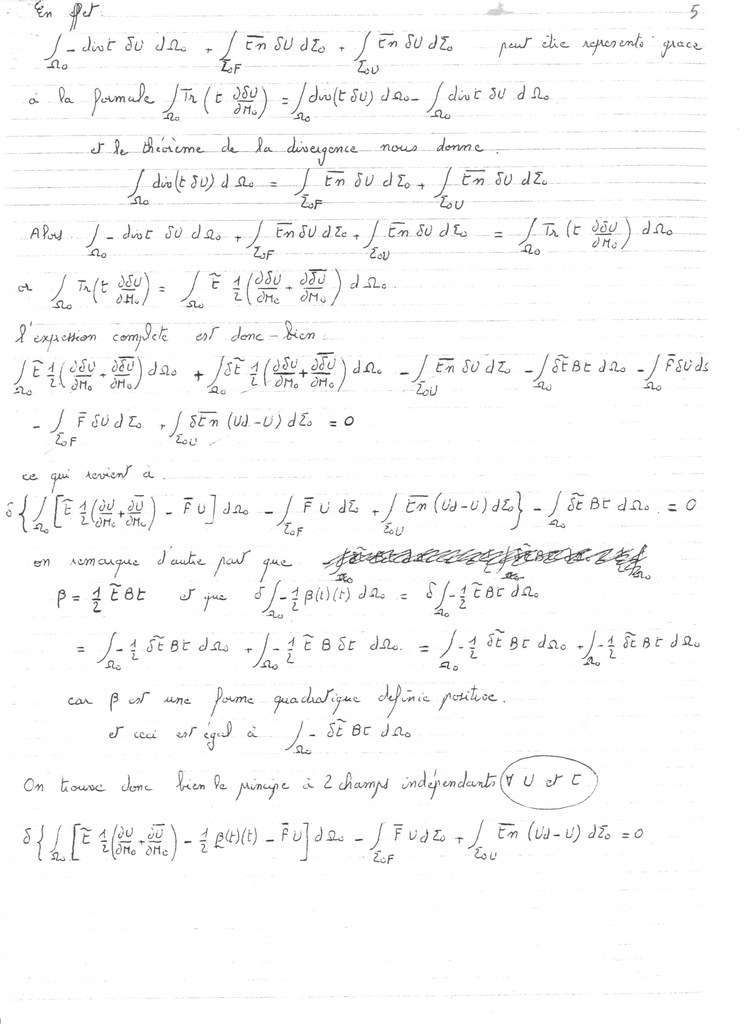 En effet: 5
∫_Ω₀ - div t δU dΩ₀ + ∫_Σ₀F \overline{tn} δU dΣ₀ + ∫_Σ₀U \overline{tn} δU dΣ₀ peut être représenté grace
à la formule ∫_Ω₀ Tr(t ∂δU/∂M₀) = ∫_Ω₀ div(t δU) dΩ₀ - ∫_Ω₀ div t δU dΩ₀
et le théorème de la divergence nous donne.
∫_Ω₀ div(t δU) dΩ₀ = ∫_Σ₀F \overline{tn} δU dΣ₀ + ∫_Σ₀U \overline{tn} δU dΣ₀
Alors ∫_Ω₀ - div t δU dΩ₀ + ∫_Σ₀F \overline{tn} δU dΣ₀ + ∫_Σ₀U \overline{tn} δU dΣ₀ = ∫_Ω₀ Tr(t ∂δU/∂M₀) dΩ₀
or ∫_Ω₀ Tr(t ∂δU/∂M₀) = ∫_Ω₀ t̃ 1/2 (∂δU/∂M₀ + \overline{∂δU}/∂M₀) dΩ₀
l'expression complète est donc bien.
∫_Ω₀ t̃ 1/2 (∂δU/∂M₀ + \overline{∂δU}/∂M₀) dΩ₀ + ∫_Ω₀ δt̃ 1/2 (∂δU/∂M₀ + \overline{∂δU}/∂M₀) dΩ₀ - ∫_Σ₀U \overline{tn} δU dΣ₀ - ∫_Ω₀ δt̃ Bt dΩ₀ - ∫_Ω₀ F̄ δU dΩ
- ∫_Σ₀F F̄ δU dΣ₀ + ∫_Σ₀U δ\overline{tn} (Ud-U) dΣ₀ = 0
ce qui revient à.
δ{∫_Ω₀ [t̃ 1/2 (∂U/∂M₀ + \overline{∂U}/∂M₀) - F̄ U] dΩ₀ - ∫_Σ₀F F̄ U dΣ₀ + ∫_Σ₀U \overline{tn} (Ud-U) dΣ₀} - ∫_Ω₀ δt̃ Bt dΩ₀ = 0
on remarque d'autre part que
β = 1/2 t̃ Bt et que δ∫_Ω₀ -1/2 β(t)(t) dΩ₀ = δ∫_Ω₀ -1/2 t̃ Bt dΩ₀
= ∫_Ω₀ -1/2 δt̃ Bt dΩ₀ + ∫_Ω₀ -1/2 t̃ B δt dΩ₀ = ∫_Ω₀ -1/2 δt̃ Bt dΩ₀ + ∫_Ω₀ -1/2 δt̃ Bt dΩ₀
car β est une forme quadratique definie positive.
et ceci est égal à ∫_Ω₀ - δt̃ Bt dΩ₀
On trouve donc bien le principe à 2 champs indépendants ∀ U et t
δ{∫_Ω₀ [t̃ 1/2 (∂U/∂M₀ + \overline{∂U}/∂M₀) - 1/2 β(t)(t) - F̄ U] dΩ₀ - ∫_Σ₀F F̄ U dΣ₀ + ∫_Σ₀U \overline{tn} (Ud-U) dΣ₀ = 0